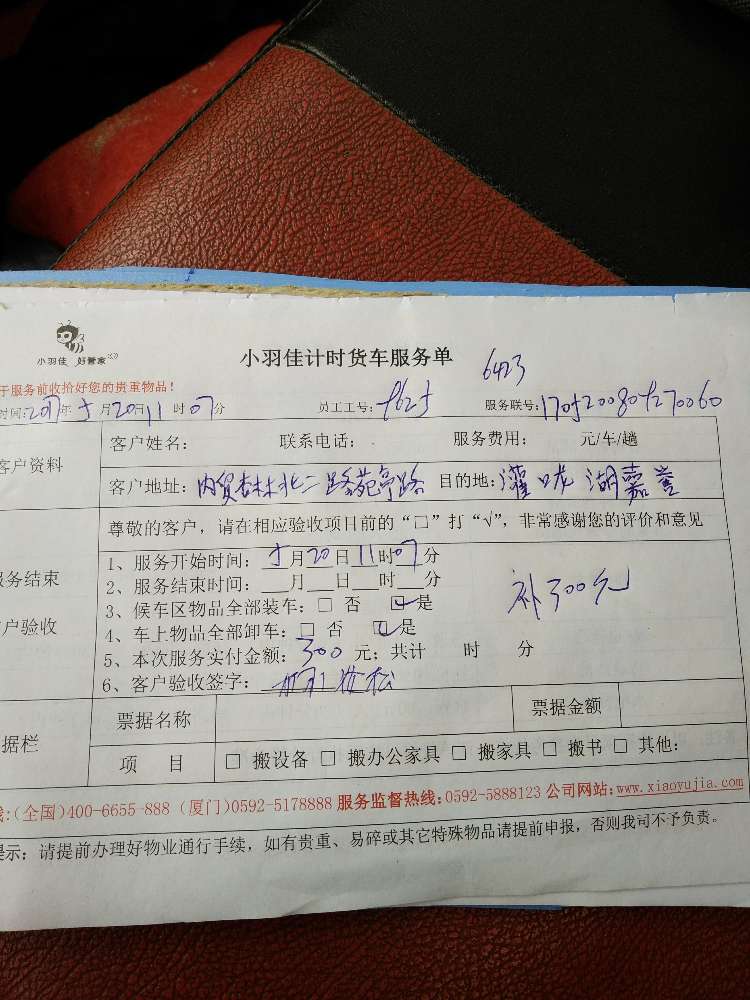 小羽佳 好管家
小羽佳计时货车服务单
6423
于服务前收拾好您的贵重物品！
时间:2017年5月20日11时07分 员工工号: 服务联号:
客户资料
客户姓名： 联系电话： 服务费用： 元/车/趟
客户地址：内贸杏林北二路苑亭路 目的地：灌口 湖嘉
尊敬的客户，请在相应验收项目前的“□”打“√”，非常感谢您的评价和意见
服务结束
客户验收
1、服务开始时间：5月20日11时07分
2、服务结束时间：__月__日__时__分
3、候车区物品全部装车：□ 否 ☑是
4、车上物品全部卸车：□ 否 ☑是
补300元
5、本次服务实付金额：300元；共计 时 分
6、客户验收签字：
据栏
票据名称 票据金额
项 目 □ 搬设备 □ 搬办公家具 □ 搬家具 □ 搬书 □ 其他：
线:(全国)400-6655-888 (厦门)0592-5178888 服务监督热线:0592-5888123 公司网站:www.xiaoyujia.com
提示：请提前办理好物业通行手续，如有贵重、易碎或其它特殊物品请提前申报，否则我司不予负责。